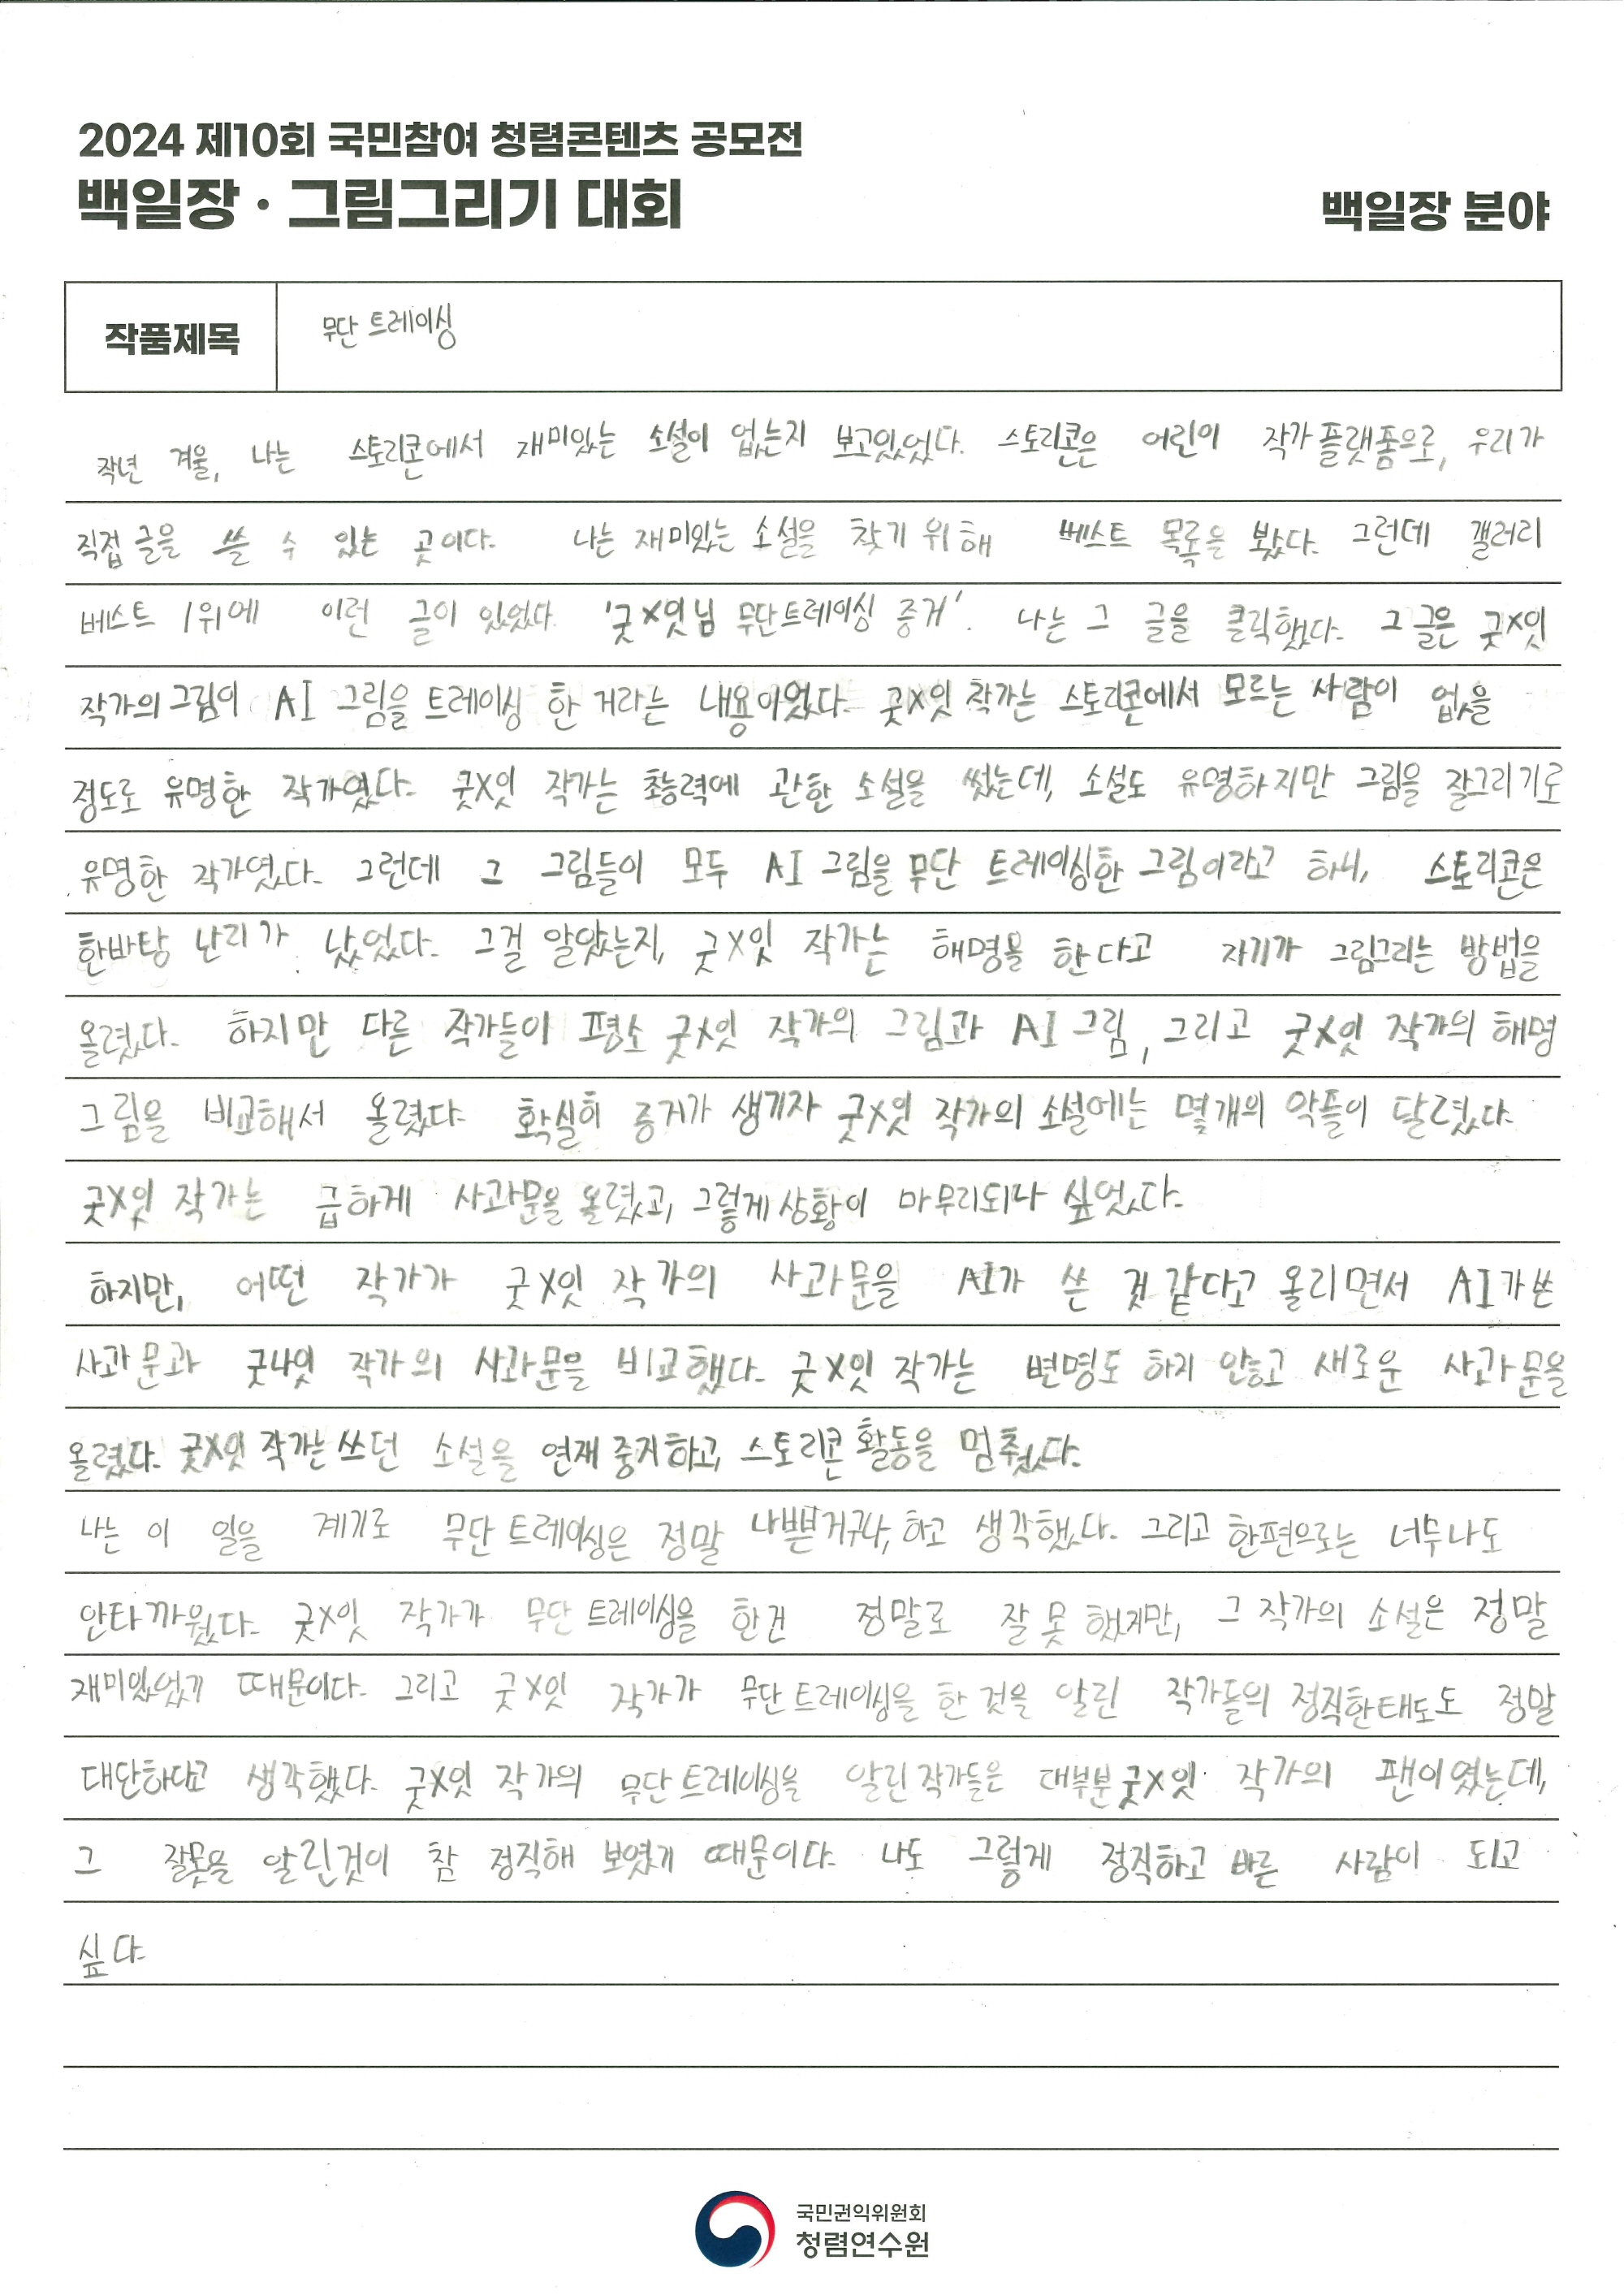 2024 제10회 국민참여 청렴콘텐츠 공모전
백일장 · 그림그리기 대회
백일장 분야
작품제목
무단 트레이싱
작년 겨울, 나는 스토리콘에서 재미있는 소설이 없는지 보고있었다. 스토리콘은 어린이 작가 플랫폼으로, 우리가
직접 글을 쓸 수 있는 곳이다. 나는 재미있는 소설을 찾기 위해 베스트 목록을 봤다. 그런데 갤러리
베스트 1위에 이런 글이 있었다. '굿X잇님 무단트레이싱 증거'. 나는 그 글을 클릭했다. 그 글은 굿X잇
작가의 그림이 AI 그림을 트레이싱 한 거라는 내용이었다. 굿X잇 작가는 스토리콘에서 모르는 사람이 없을
정도로 유명한 작가였다. 굿X잇 작가는 초능력에 관한 소설을 썼는데, 소설도 유명하지만 그림을 잘그리기로
유명한 작가였다. 그런데 그 그림들이 모두 AI 그림을 무단 트레이싱한 그림이라고 하니, 스토리콘은
한바탕 난리가 났었다. 그걸 알았는지, 굿X잇 작가는 해명을 한다고 자기가 그림그리는 방법을
올렸다. 하지만 다른 작가들이 평소 굿X잇 작가의 그림과 AI 그림, 그리고 굿X잇 작가의 해명
그림을 비교해서 올렸다. 확실히 증거가 생기자 굿X잇 작가의 소설에는 몇개의 악플이 달렸다.
굿X잇 작가는 급하게 사과문을 올렸고, 그렇게 상황이 마무리되나 싶었다.
하지만, 어떤 작가가 굿X잇 작가의 사과문을 AI가 쓴 것 같다고 올리면서 AI가 쓴
사과문과 굿X잇 작가의 사과문을 비교했다. 굿X잇 작가는 변명도 하지 않고 새로운 사과문을
올렸다. 굿X잇 작가는 쓰던 소설을 연재 중지하고, 스토리콘 활동을 멈췄다.
나는 이 일을 계기로 무단 트레이싱은 정말 나쁜거구나, 하고 생각했다. 그리고 한편으로는 너무나도
안타까웠다. 굿X잇 작가가 무단 트레이싱을 한건 정말로 잘 못 했지만, 그 작가의 소설은 정말
재미있었기 때문이다. 그리고 굿X잇 작가가 무단 트레이싱을 한 것을 알린 작가들의 정직한태도도 정말
대단하다고 생각했다. 굿X잇 작가의 무단 트레이싱을 알린 작가들은 대부분 굿X잇 작가의 팬이였는데,
그 잘못을 알린것이 참 정직해 보였기 때문이다. 나도 그렇게 정직하고 바른 사람이 되고
싶다.
국민권익위원회
청렴연수원